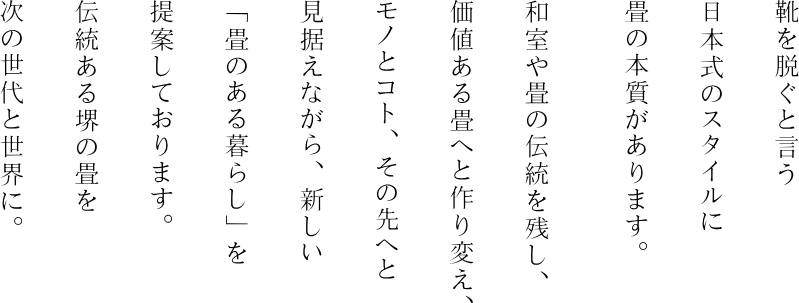 靴を脱ぐと言う
日本式のスタイルに
畳の本質があります。
和室や畳の伝統を残し、
価値ある畳へと作り変え、
モノとコト、その先へと
見据えながら、新しい
「畳のある暮らし」を
提案しております。
伝統ある堺の畳を
次の世代と世界に。